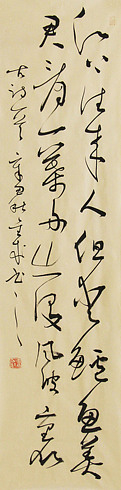 江上往来人但愛鱸魚美
君看一葉舟出没風波裏
古詩一首 書